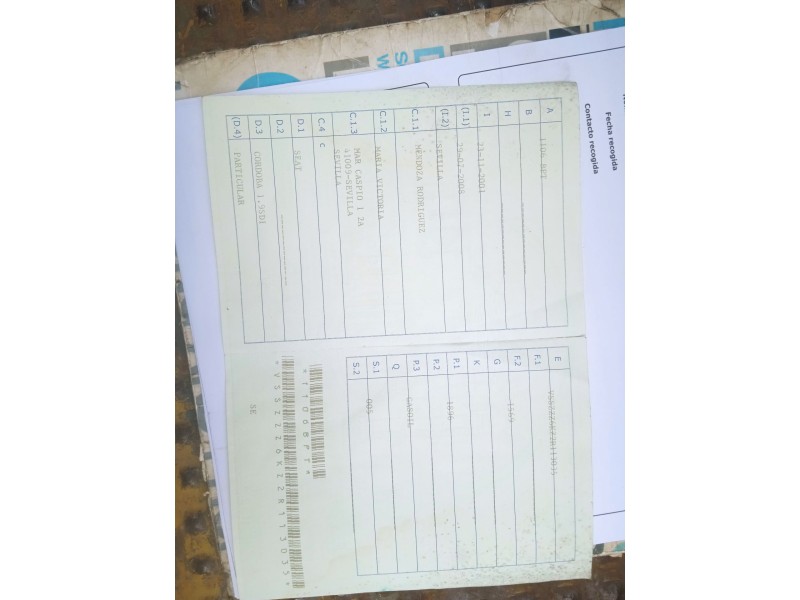 Fecha recogida
Contacto recogida
A 1106 BPT
B
H
I 23-11-2001
(I.1) 29-07-2008
(I.2) SEVILLA
C.1.1 MENDOZA RODRIGUEZ
C.1.2 MARIA VICTORIA
C.1.3 MAR CASPIO 1 2A
41009-SEVILLA
SEVILLA
C.4 C
D.1 SEAT
D.2
D.3 CORDOBA 1.9SDI
(D.4) PARTICULAR
E VSSZZZ6KZ2R113035
F.1
F.2 1569
G
K
P.1 1896
P.2
P.3 GASOIL
Q
S.1 005
S.2
*1106BPT*
*VSSZZZ6KZ2R113035*
SE